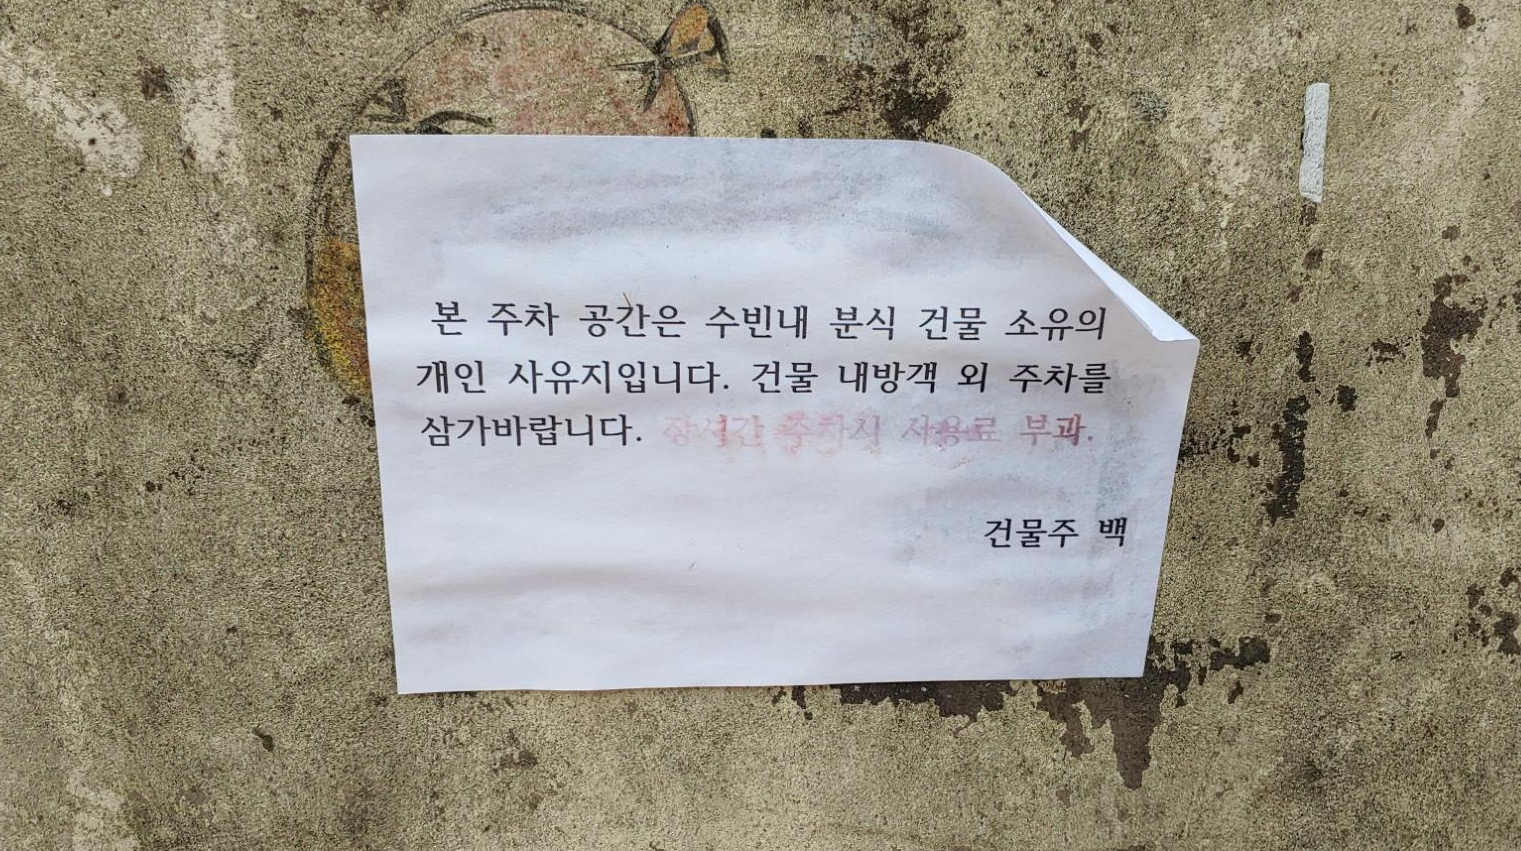 본 주차 공간은 수빈내 분식 건물 소유의
개인 사유지입니다. 건물 내방객 외 주차를
삼가바랍니다. 장시간 주차시 사용료 부과.
건물주 백